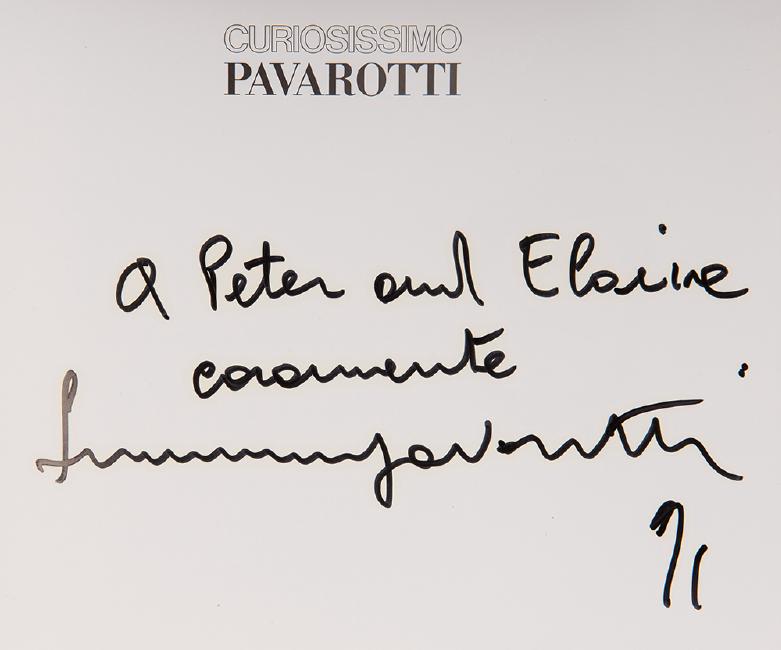 CURIOSISSIMO
PAVAROTTI
A Peter and Elaine
caramente
Luciano Pavarotti
91